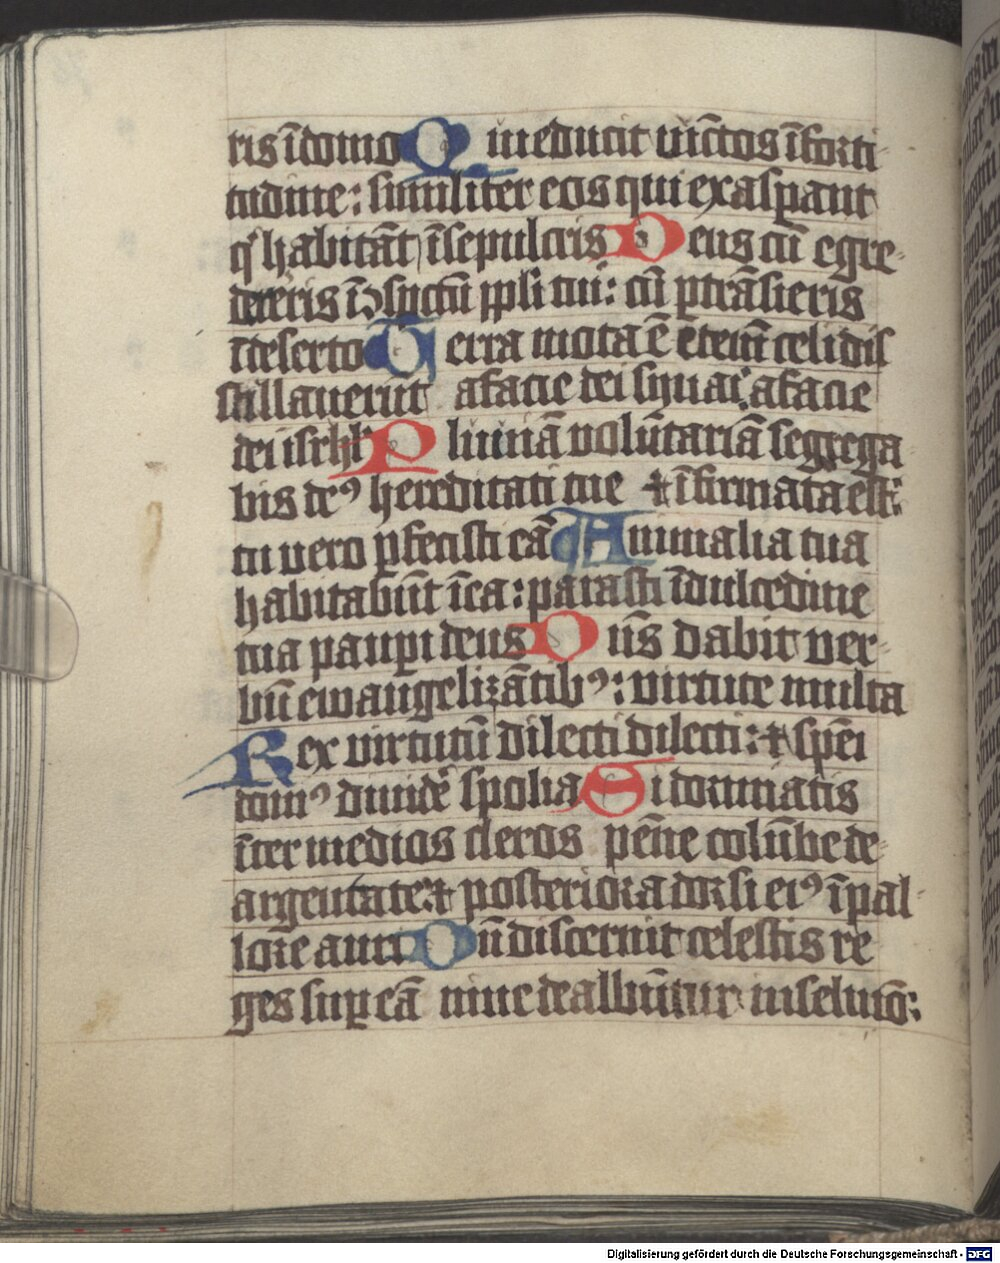 ris ī domo Qui educit vīctos ī forti
tudine: similiter eos qui exasꝑant
qͥ habitāt ī sepulcris Deus cū egre-
dereris ī ꝯspectu ppli tui: cū ptrāsieris
ī deserto Terra mota ē etenī celi dis
stillauerūt a facie dei synai: a facie
dei isrl͞ Pluuiā volūtariā segrega
bis deꝰ hereditati tue ⁊ īfirmata est:
tu vero ꝑfecisti eā Animalia tua
habitabūt ī ea: parasti ī dulcedine
tua pauꝑi deus Dn̄s dabit ver-
bū ewangelizātibꝰ: virtute multa
Rex virtutū dilecti dilecti: ⁊ spēi
domꝰ diuidē spolia Si dormiatis
īter medios cleros pēne colūbe de-
argentate: ⁊ posteriora dorsi eiꝰ ī pal-
lore auri Dū discernit celestis re
ges suꝑ eā niue dealbūtur in selmō:
Digitalisierung gefördert durch die Deutsche Forschungsgemeinschaft - DFG